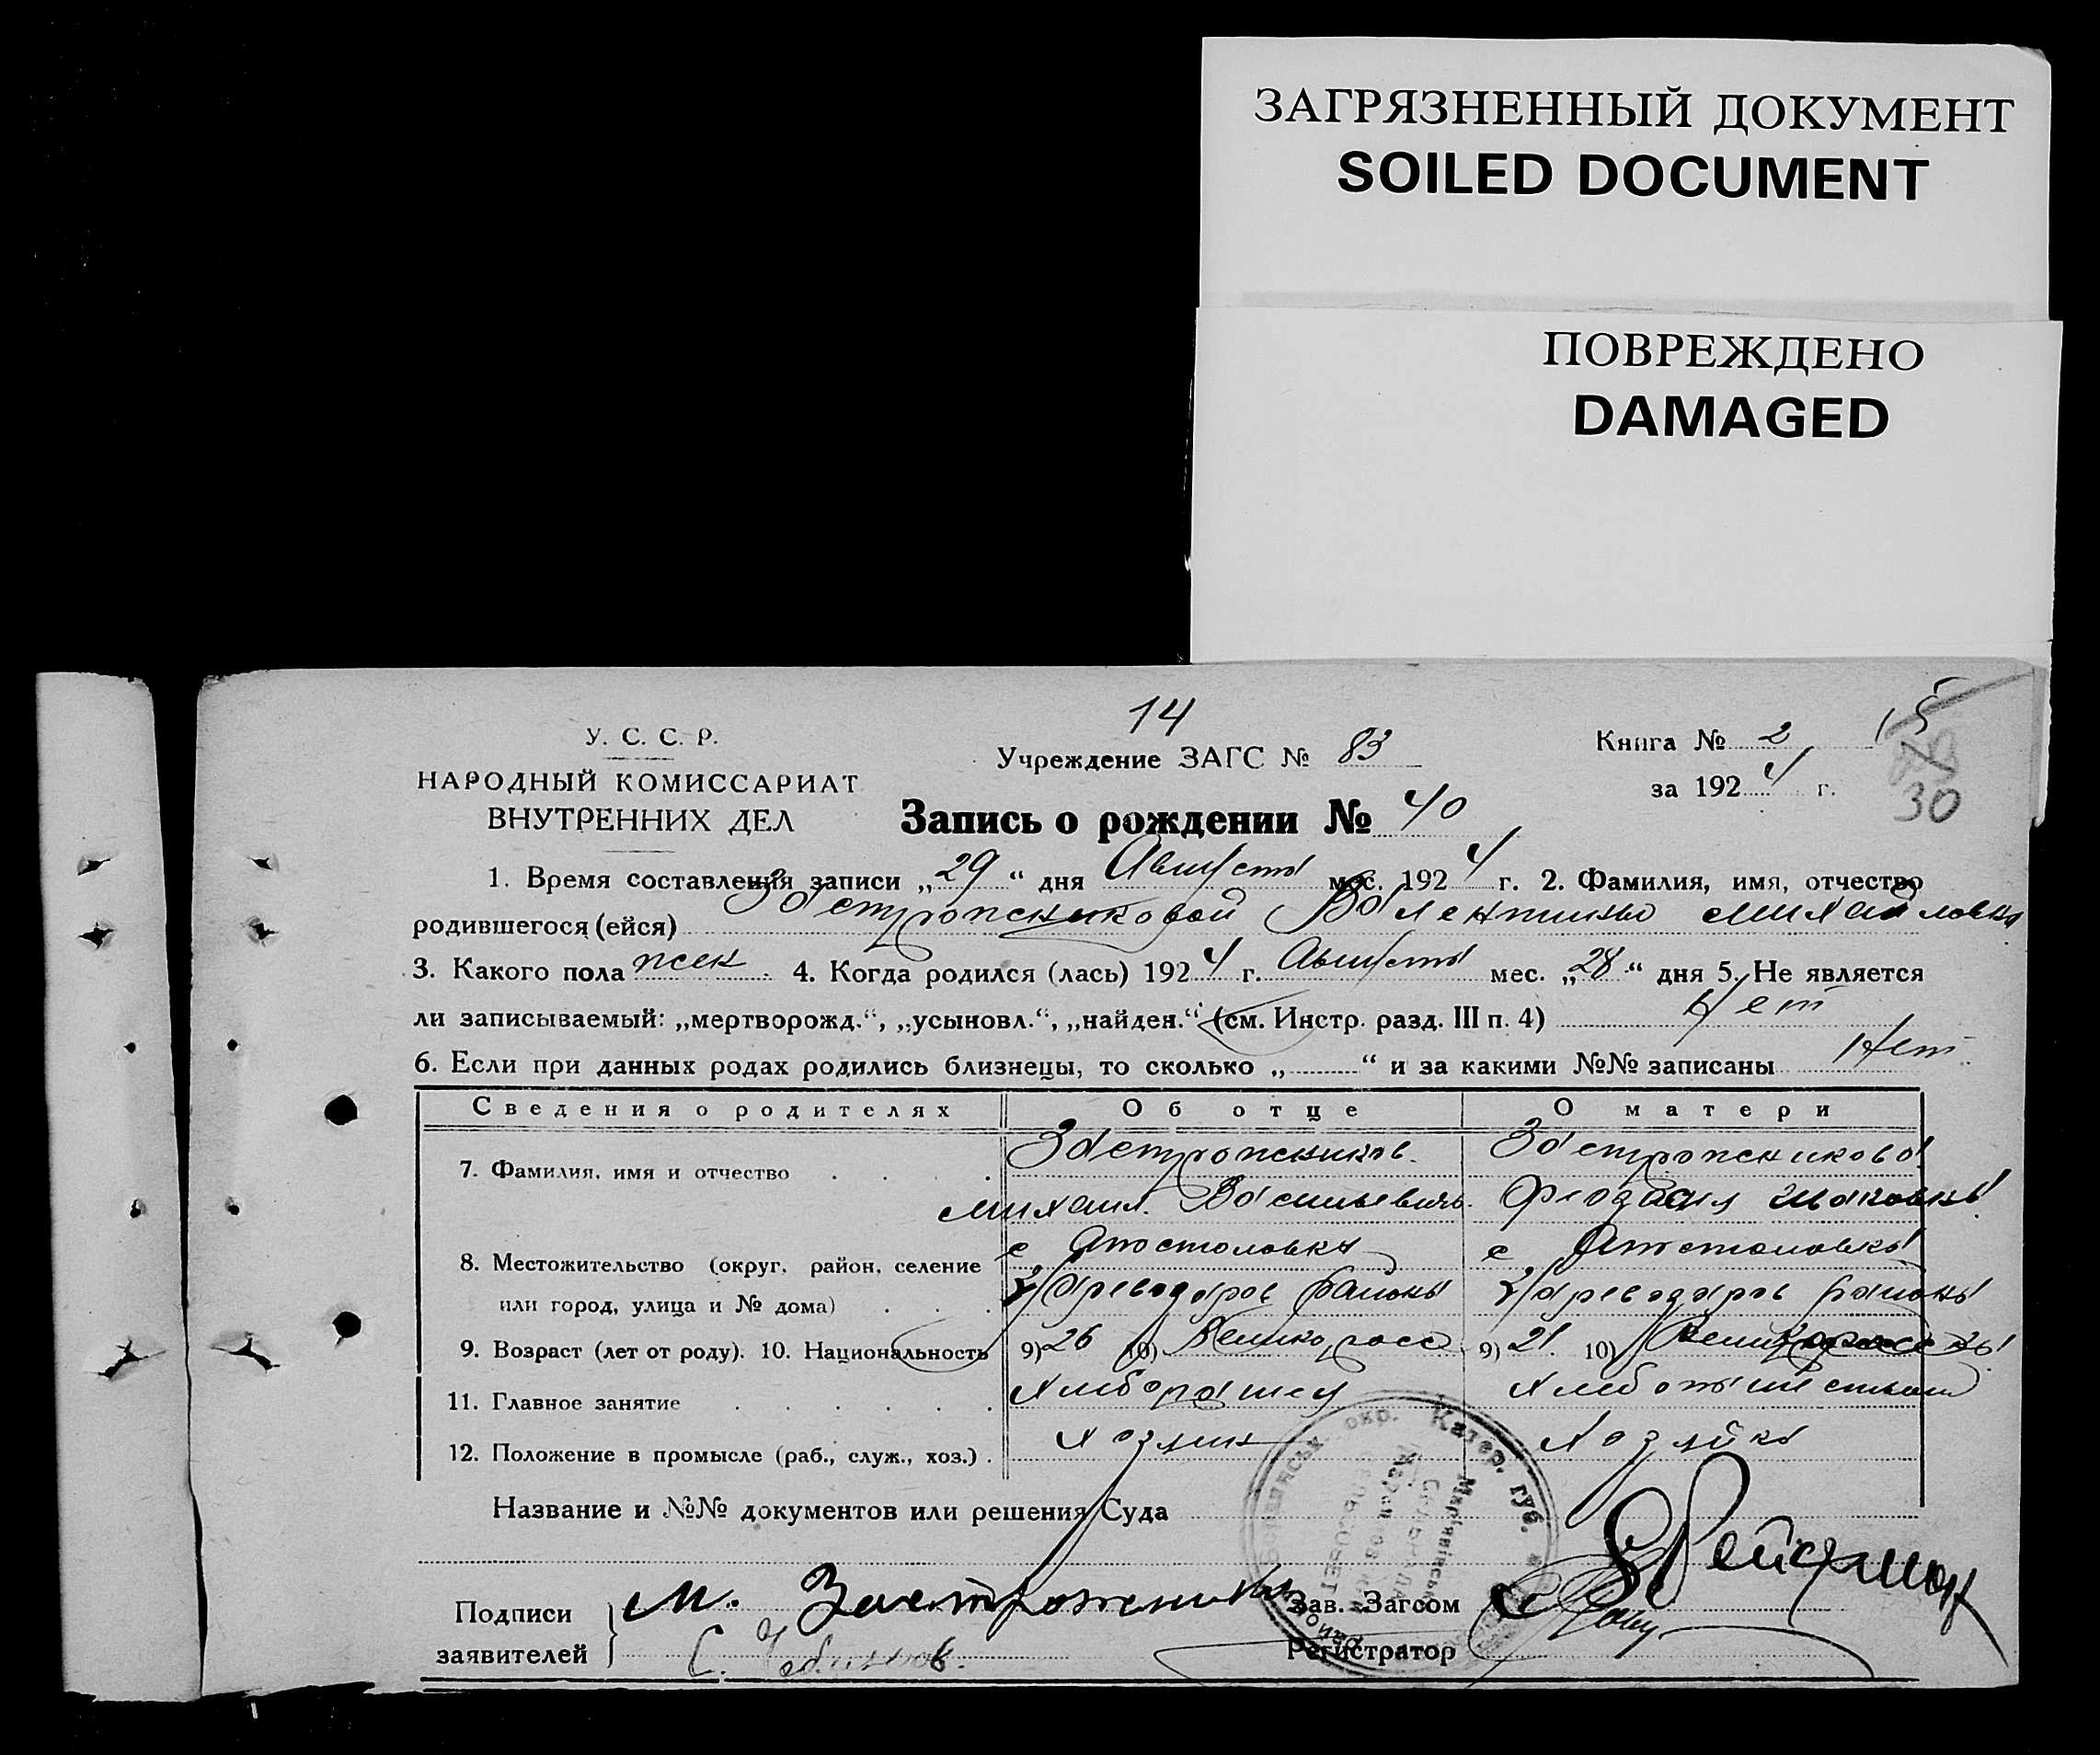 ЗАГРЯЗНЕННЫЙ ДОКУМЕНТ
SOILED DOCUMENT
ПОВРЕЖДЕНО
DAMAGED
14
15
30
У. С. С. Р.
НАРОДНЫЙ КОМИССАРИАТ
ВНУТРЕННИХ ДЕЛ
Учреждение ЗАГС № 83
Книга № 2
за 1924 г.
Запись о рождении № 40
1. Время составления записи „29“ дня Августа мес. 1924 г. 2. Фамилия, имя, отчество
родившегося (ейся) Застрожниковой Валентины Михайловны
3. Какого пола жен. 4. Когда родился (лась) 1924 г. Августа мес. „28“ дня 5. Не является
ли записываемый: „мертворожд.“, „усыновл.“, „найден.“ (см. Инстр. разд. III п. 4) Нет
6. Если при данных родах родились близнецы, то сколько „ “ и за какими №№ записаны Нет
Сведения о родителях Об отце О матери
7. Фамилия, имя и отчество Застрожников Застрожникова
Михаил Васильевич Феодосия
8. Местожительство (округ, район, селение с Апостоловка с Апостоловка
или город, улица и № дома) района района
9. Возраст (лет от роду). 10. Национальность 9) 26 10) Великоросс 9) 21 10)
11. Главное занятие Хлебопашец
12. Положение в промысле (раб., служ., хоз.) Хозяин Хозяйка
Название и №№ документов или решения Суда
Подписи
заявителей
М. Застрожников
С.
Зав. Загсом Рейдман
Регистратор
окр. Катер. губ.